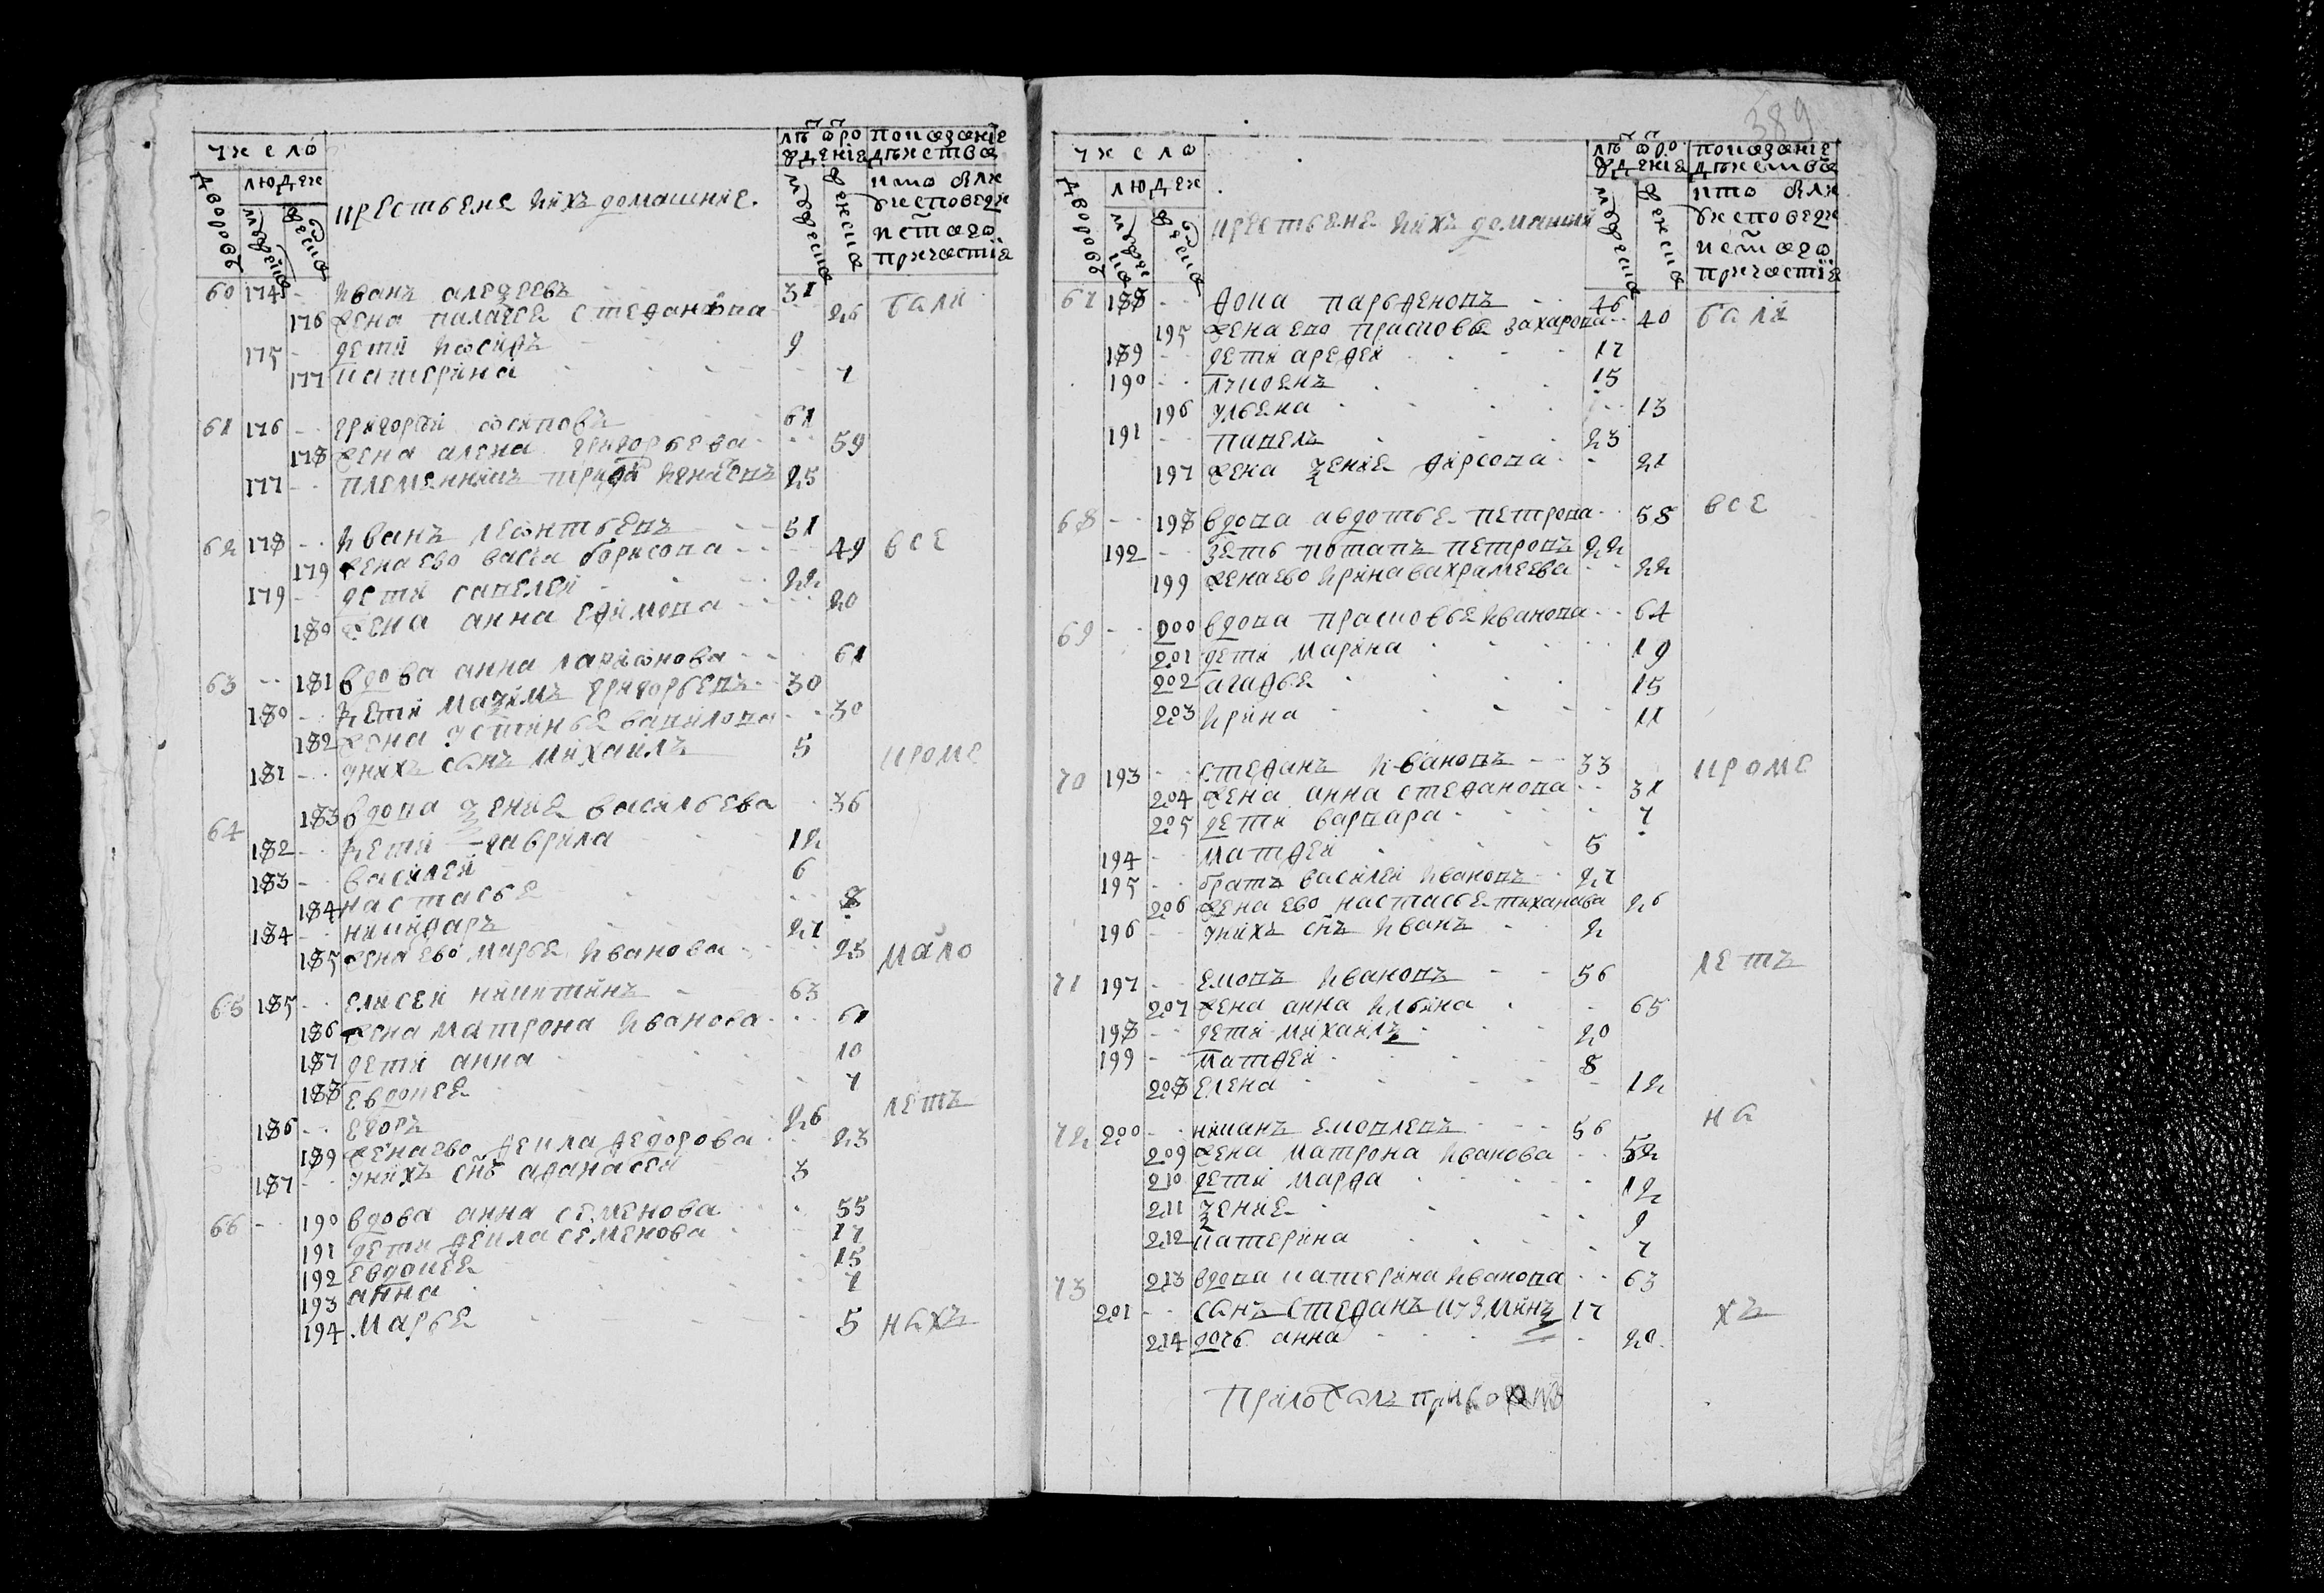 число
дворовъ
людеи
мужеска
женска
крестьяне ихъ домашние.
лѣтъ от рождения
мужеска
женска
показание действа
кто были у исповеди и с͠таго причастия
60 174 - - иванъ алеѯеевъ - - 31
176 жена палагея стефанова - 26 были
175 - дети иосифъ - - 9
177 катерина - - 7
61 176 - - григорей осиповъ - - 61
178 жена алена григорьева - - 59
177 - - племянникъ 25
62 178 - - иванъ леонтьевъ - - 51
179 жена ево васса борисова - - 49 все
179 - - дети савелей - - 22
180 жена анна ефимова - - 20
63 - - 181 вдова анна ларионова - - 61
180 - - дети маѯимъ григорьевъ - 30
182 жена устинья вавилова - - 30
181 - - у нихъ сынъ михаилъ 5 кроме
64 183 вдова ѯения васильева - 36
182 - - дети гаврила - - 12
183 - - василей 6
184 настасья - - 8
184 - - никифаръ 27
185 жена ево марья иванова - - 25 мало
65 185 - - елисей никитинъ - 63
186 жена матрона иванова - - 61
187 дети анна - - 10
188 евдокея - - 7
186 - - егоръ - - 26 летъ
189 жена ево фекла федорова - - 23
187 - - у нихъ сн͠ъ афанасей 3
66 - - 190 вдова анна семенова - 55
191 дети фекла семенова - 17
192 евдокея - - 15
193 анна - - 7
194 марья - - 5 ныхъ
589
число
дворовъ
людеи
мужеска
женска
крестьяне ихъ домашнии
лѣтъ от рождения
мужеска
женска
показание действа
кто были у исповеди и с͠таго причастия
67 188 - - фока парфеновъ - - 46
195 жена ево прасковья захарова - - 40 были
189 - - дети арефей - - 17
190 - - лукоянъ - - 15
196 ульяна - - 13
191 - - павелъ - - 23
197 жена ѯения фирсова - - 21
68 - - 198 вдова авдотья петрова - - 58 все
192 - - зять потапъ петровъ 22
199 жена ево ирина вахрамеева - - 22
69 - - 200 вдова прасковья иванова - - 64
201 дети марина - - 19
202 агафья - - 15
203 ирина - - 11
70 193 - - стефанъ ивановъ - - 33 кроме
204 жена анна стефанова - - 31
205 дети варвара - - 7
194 - - матфей - - 5
195 - - братъ василей ивановъ - - 27
206 жена ево настасья тиханава 26
196 - - у нихъ сн͠ъ иванъ - - 2
71 197 - - емовъ ивановъ - - 56 летъ
207 жена анна ильина - - 65
198 - - дети михаилъ - - 20
199 - - матфей - - 8
208 елена - - 12
72 200 - - киманъ емовлевъ - - 56 ны
209 жена матрона иванова - - 52
210 дети марфа - - 12
211 ѯения - - 9
212 катерина - - 7
73 213 вдова катерина иванова - - 63
201 - - сынъ стефанъ кузминъ 17 хъ
214 дочь анна - - 20